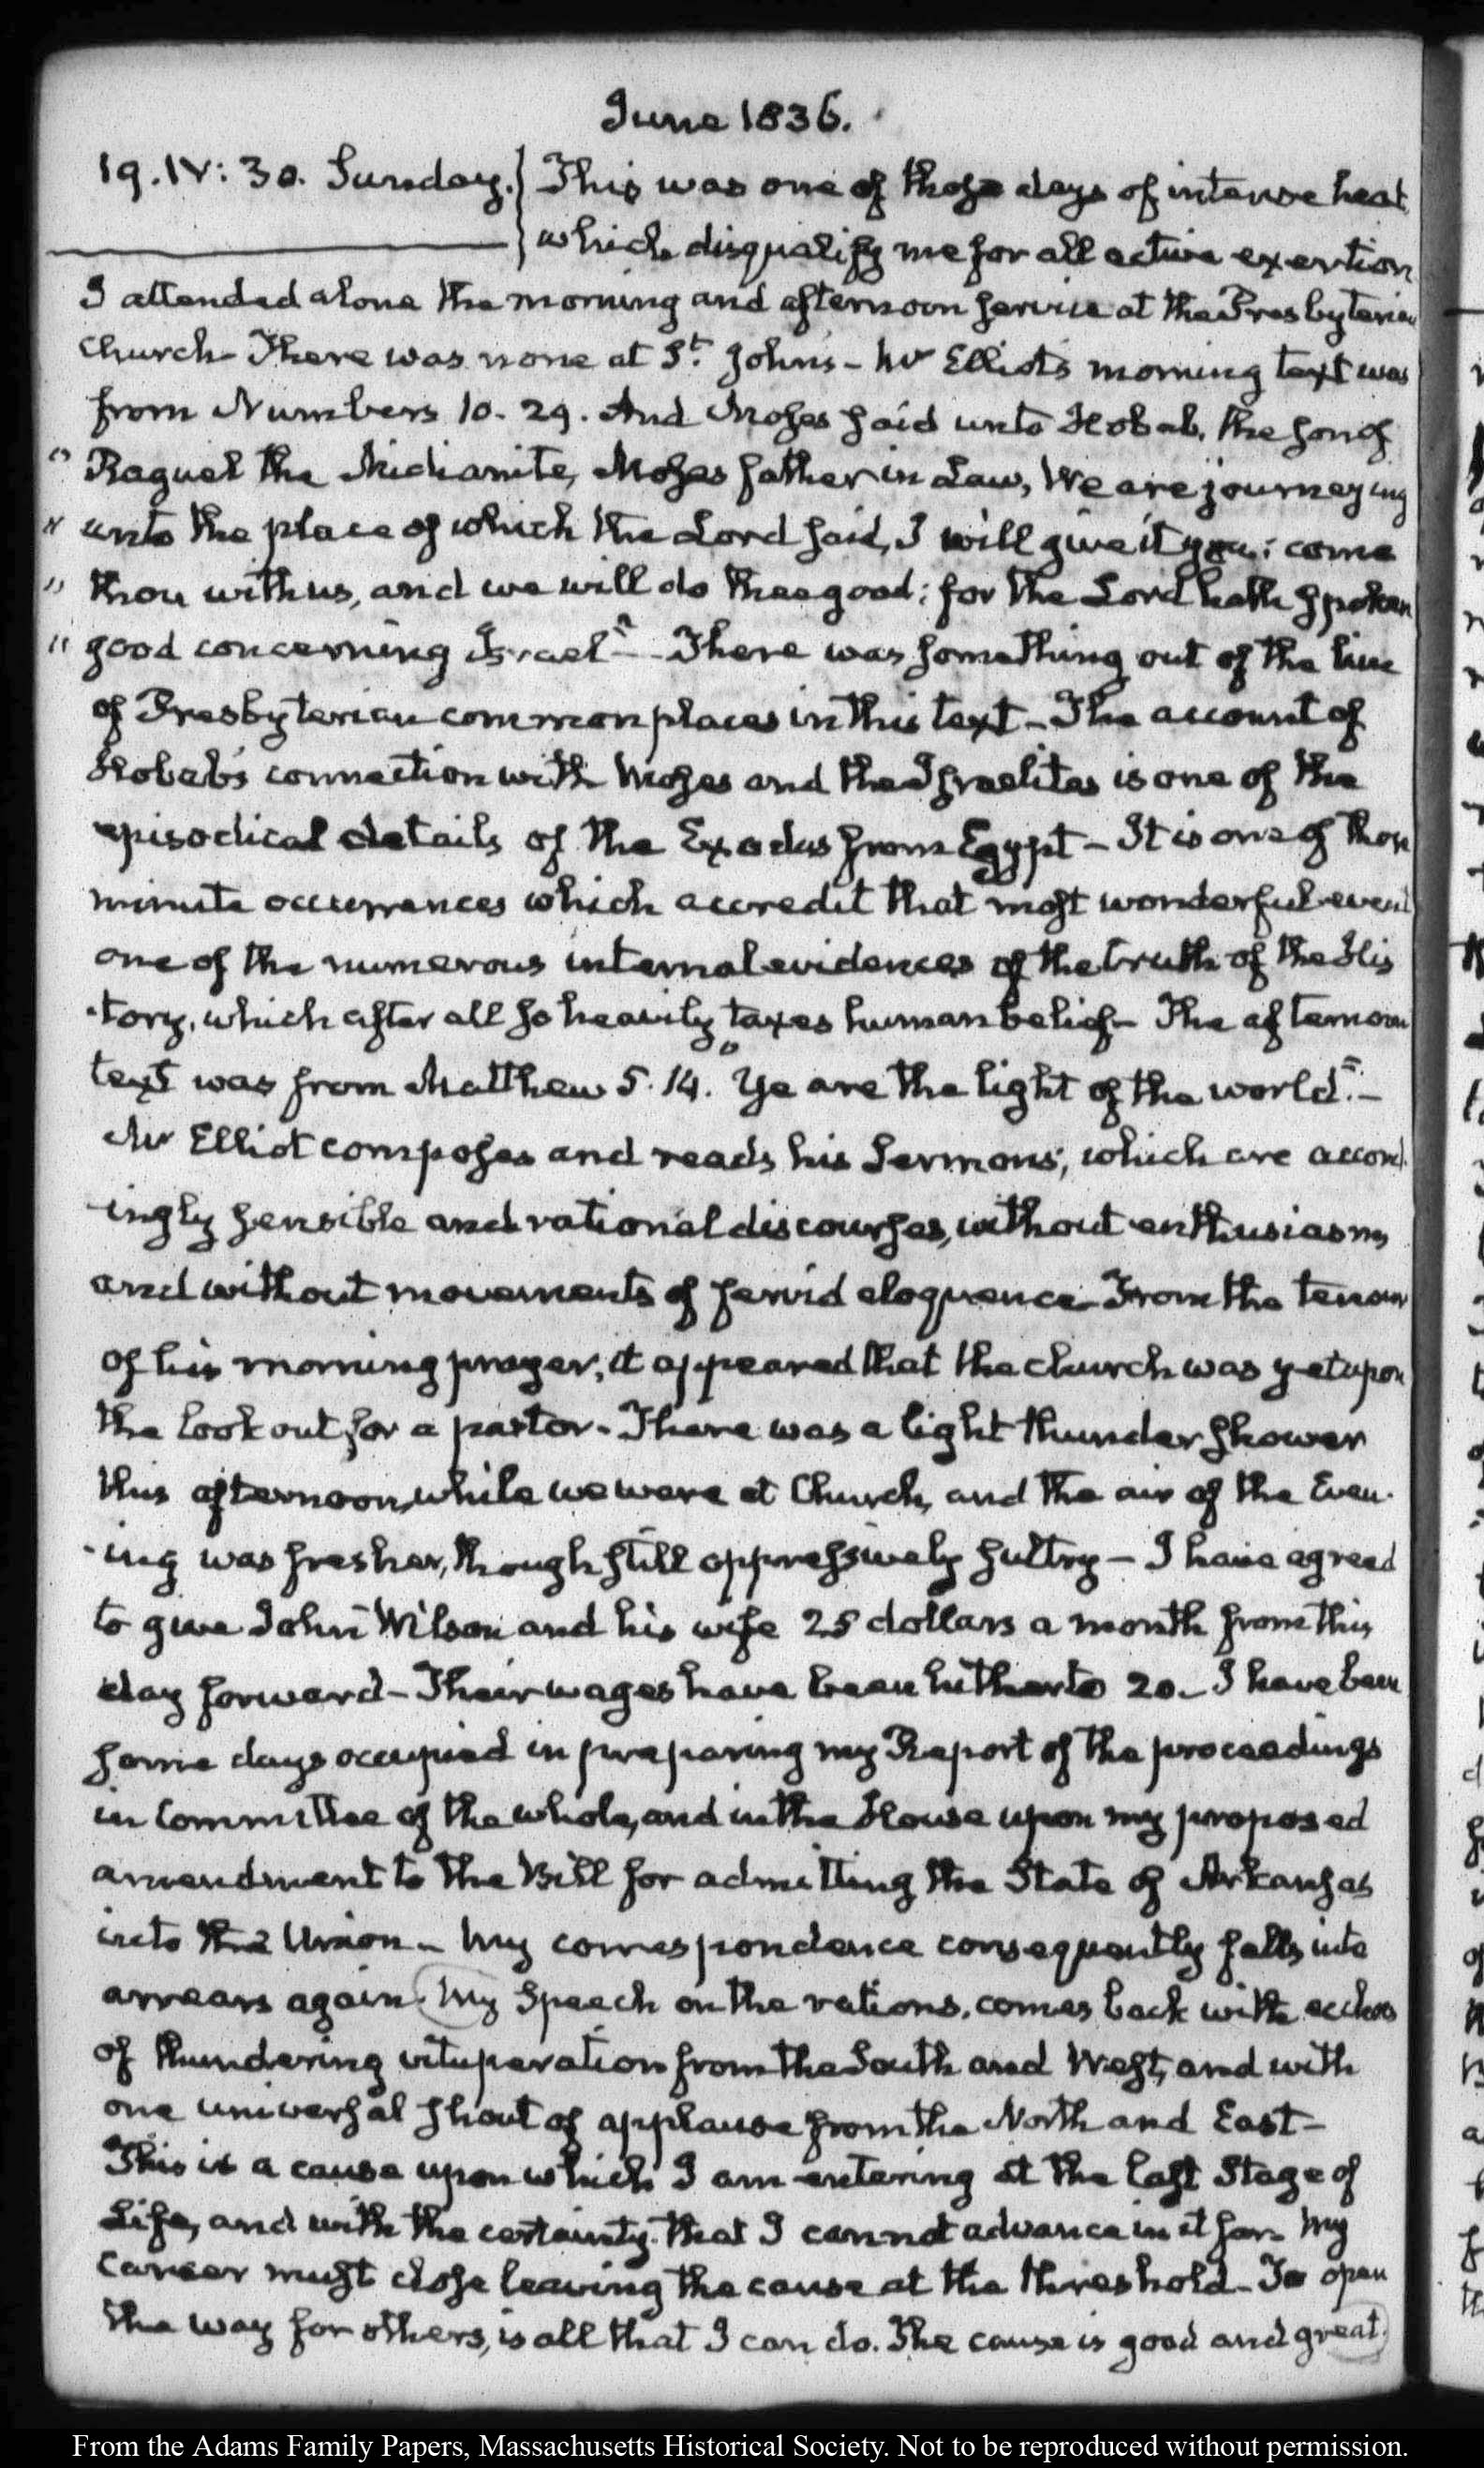 June 1836.
19. IV: 30. Sunday. } This was one of those days of intense heat
which disqualify me for all active exertion
I attended alone the morning and afternoon service at the Presbyterian
Church – There was none at St. John's – Mr Elliot's morning text was
from Numbers 10. 29. And Moses said unto Hobab, the son of
" Raguel the Midianite, Moses father in Law, We are journeying
" unto the place of which the Lord said, I will give it you: come
" thou with us, and we will do thee good: for the Lord hath spoken
" good concerning Israel" – There was something out of the line
of Presbyterian common places in this text – The account of
Hobab's connection with Moses and the Israelites is one of the
episodical details of the Exodus from Egypt – It is one of those
minute occurrences which accredit that most wonderful event
one of the numerous internal evidences of the truth of the His
tory, which after all so heavily taxes human belief – The afternoon
text was from Matthew 5. 14. "Ye are the light of the world". –
Mr Elliot composes and reads his Sermons, which are accord
ingly sensible and rational discourses, without enthusiasm,
and without movements of fervid eloquence – From the tenour
of his morning prayer, it appeared that the church was yet upon
the look out for a pastor. There was a light thunder shower
this afternoon, while we were at Church, and the air of the Even-
-ing was fresher, though still oppressively sultry – I have agreed
to give John Wilson and his wife 25 dollars a month from this
day forward – Their wages have been hitherto 20 – I have been
some days occupied in preparing my Report of the proceedings
in Committee of the whole, and in the House upon my proposed
amendment to the Bill for admitting the State of Arkansas
into the Union – My correspondence consequently falls into
arrears again. My Speech on the rations, comes back with echoes
of thundering vituperation from the South and West, and with
one universal shout of applause from the North and East –
This is a cause upon which I am entering at the last Stage of
Life, and with the certainty that I cannot advance in it far. My
career must close leaving the cause at the threshold – To open
the way for others, is all that I can do. The cause is good and great.
From the Adams Family Papers, Massachusetts Historical Society. Not to be reproduced without permission.